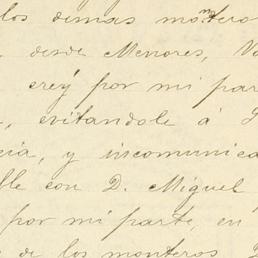 los demas monteros
desde Menores, Va
crey por mi par
, evitandole á
cia, y incomunica
lle con D. Miguel
por mi parte, en
de los monteros